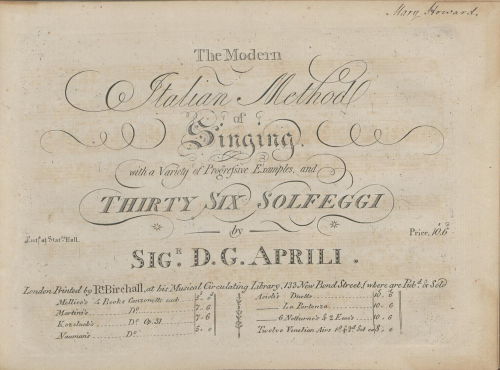 Mary Howard.
The Modern
Italian Method
of
Singing.
with a Variety of Progreſsive Examples, and
THIRTY SIX SOLFEGGI
by
Ent.d at Stat.rs Hall.
Price, 10.6
SIG.R D.G. APRILI.
London Printed by R.t Birchall, at his Musical Circulating Library, 133 New Bond Street, (where are Pub.d & Sold
Millico's 4 Books Canzonetts each
Martini's D.o 7.6
Kozeluch's D.o Op. 31 7.6
Nauman's D.o 5.0
Asioli's Duetts 10.6
La Partenza 10.6
6 Notturno's & 2 Easy's 10.6
Twelve Venetian Airs